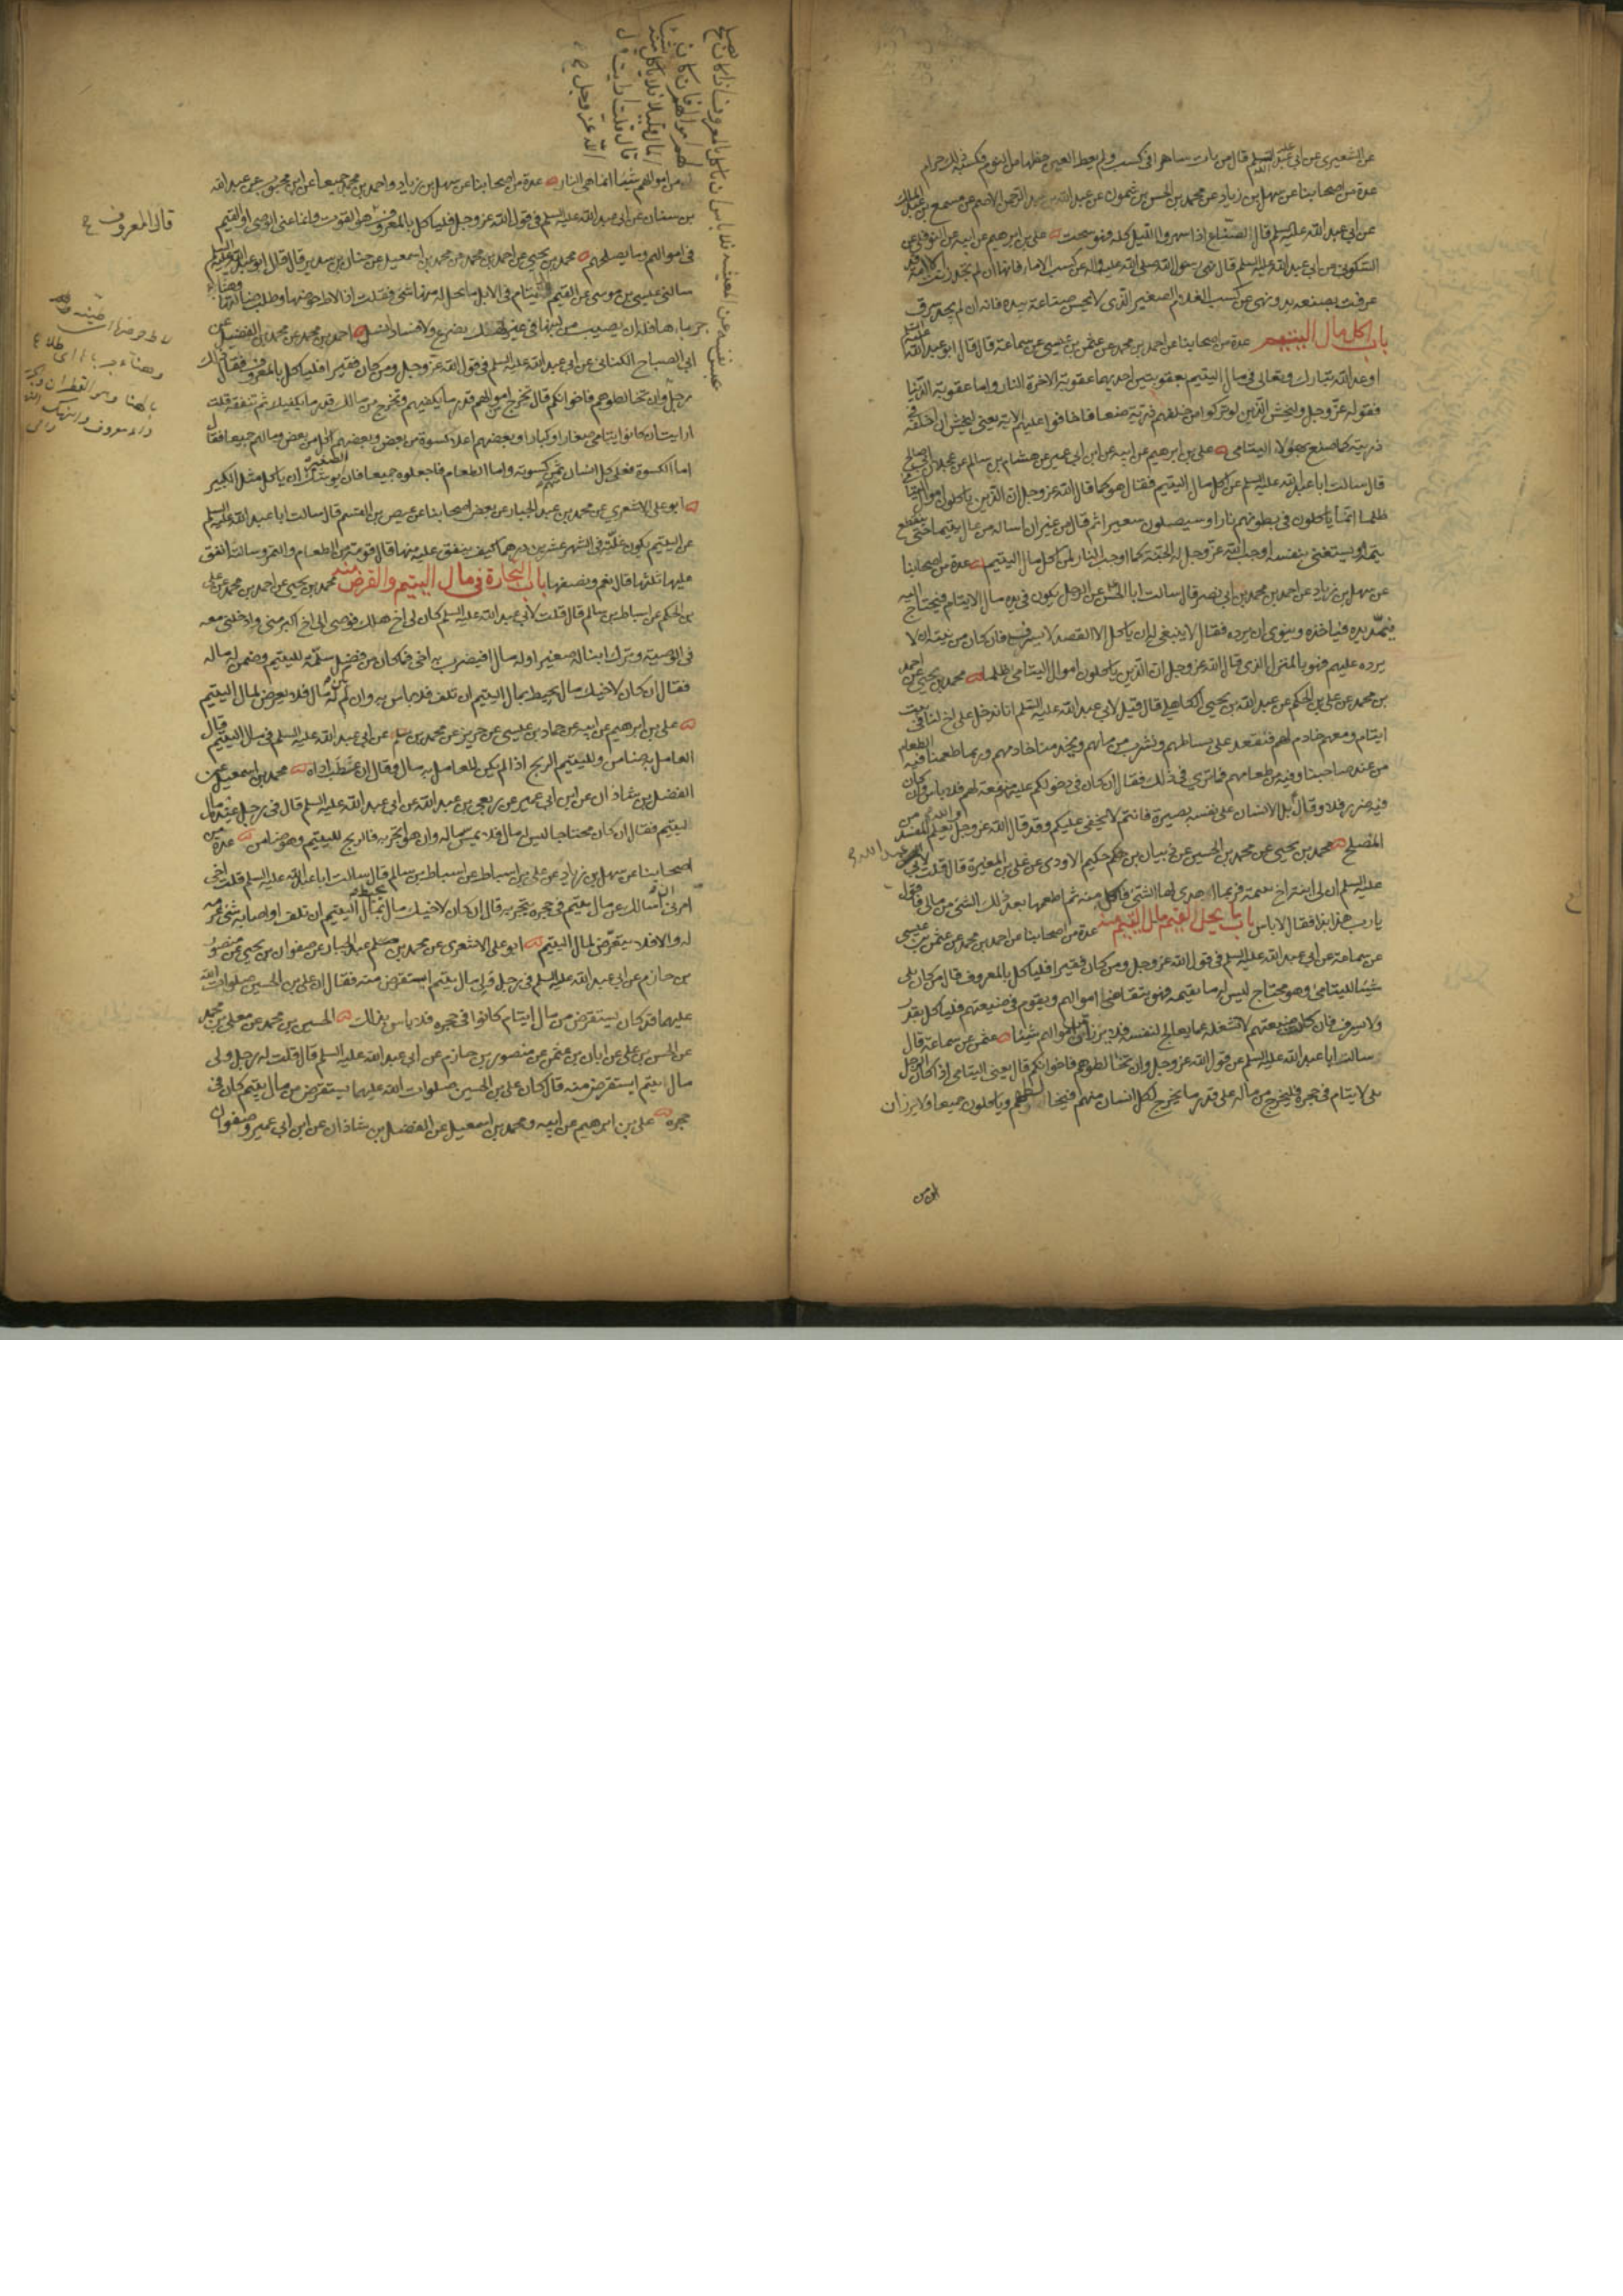 عن الشعيرى عن ابى عبد الله عليه السلم قال من بات ساهرا فى كسب ولم يعط العين حظها من النوم فكسبه ذلك حرام
عدة من اصحابنا عن سهل بن زياد عن محمد بن الحسن بن شمون عن عبد الله بن عبد الرحمن الاصم عن مسمع بن عبد الملك
عن ابى عبد الله عليه السلم قال الصناع اذا سهروا الليل كله فهو سحت على بن ابرهيم عن ابيه عن النوفلى عن
السكونى عن ابى عبد الله عليه السلم قال نهى رسول الله صلى الله عليه واله عن كسب الاماء فانها ان لم تجد زنت الا امة قد
عرفت بصنعة يد ونهى عن كسب الغلام الصغير الذى لا يحسن صناعة بيده فانه ان لم يجد سرق
باب اكل مال اليتيم عدة من اصحابنا عن احمد بن محمد عن عثمن بن عيسى عن سماعة قال قال ابو عبد الله عليه السلم
اوعد الله تبارك وتعالى فى مال اليتيم بعقوبتين احديهما عقوبة الاخرة النار واما عقوبة الدنيا
فقوله عز وجل وليخش الذين لو تركوا من خلفهم ذرية ضعافا خافوا عليهم الاية يعنى ليخش ان اخلفه فى
ذريته كما صنع بهؤلاء اليتامى على بن ابرهيم عن ابيه عن ابن ابى عمير عن هشام بن سالم عن عجلان ابى صالح
قال سالت ابا عبد الله عليه السلم عن اكل مال اليتيم فقال هو كما قال الله عز وجل ان الذين ياكلون اموال اليتامى
ظلما انما ياكلون فى بطونهم نارا وسيصلون سعيرا ثم قال من غير ان اساله من عال يتيما حتى ينقطع
يتمه او يستغنى بنفسه اوجب الله عز وجل له الجنة كما اوجب النار لمن اكل مال اليتيم عدة من اصحابنا
عن سهل بن زياد عن احمد بن محمد بن ابى نصر قال سالت ابا الحسن عن الرجل يكون فى يده مال لايتام فيحتاج اليه
فيمد يده فياخذه وينوى ان يرده فقال لا ينبغى له ان ياكل الا القصد لا يسرف فان كان من نيته ان لا
يرده عليهم فهو بالمنزل الذى قال الله عز وجل ان الذين ياكلون اموال اليتامى ظلما محمد بن يحيى عن احمد
بن محمد عن على بن الحكم عن عبد الله بن يحيى الكاهلى قال قيل لابى عبد الله عليه السلم انا ندخل على اخ لنا فى بيت
ايتام ومعهم خادم لهم فنقعد على بساطهم ونشرب من مائهم ويخدمنا خادمهم وربما طعمنا فيه الطعام
من عند صاحبنا وفيه من طعامهم فما ترى فى ذلك فقال ان كان فى دخولكم عليهم منفعة لهم فلا باس وان كان
فيه ضرر فلا وقال بل الانسان على نفسه بصيرة فانتم لا يخفى عليكم وقد قال الله عز وجل والله يعلم المفسد من
المصلح محمد بن يحيى عن محمد بن الحسين عن ذبيان بن حكيم الاودى عن على بن المغيرة قال قلت لابى
عبد الله
عليه السلم ان لى ابنة اخ يتيمة فربما اهدى لها الشئ فاكل منه ثم اطعمها بعد ذلك الشئ من مالى فاقول
يا رب هذا بذا فقال لا باس باب ما يحل لقيم مال اليتيم منه عدة من اصحابنا عن احمد بن محمد عن عثمن بن عيسى
عن سماعة عن ابى عبد الله عليه السلم فى قول الله عز وجل ومن كان فقيرا فلياكل بالمعروف قال من كان يلى
شيئا لليتامى وهو محتاج ليس له ما يقيمه فهو يتقاضى اموالهم ويقوم فى ضيعتهم فلياكل بقدر
ولا يسرف فان كان ضيعتهم لا تشغله عما يعالج لنفسه فلا يرزأن من اموالهم شيئا عثمن عن سماعة قال
سالت ابا عبد الله عليه السلم عن قول الله عز وجل وان تخالطوهم فاخوانكم قال يعنى اليتامى اذا كان الرجل
يلى لايتام فى حجره فليخرج من ماله على قدر ما يخرج لكل انسان منهم فيخالطهم وياكلون جميعا ولا يرزان
من اموالهم شيئا انما هى النار عدة من اصحابنا عن سهل بن زياد واحمد بن محمد جميعا عن ابن محبوب عن عبد الله
بن سنان عن ابى عبد الله عليه السلم فى قول الله عز وجل فلياكل بالمعروف هو القوت وانما عنى الوصى او القيم
قال المعروف
فى اموالهم وما يصلحهم محمد بن يحيى عن احمد بن محمد عن محمد بن اسمعيل عن حنان بن سدير قال قال ابو عبد الله عليه السلم
سالنى عيسى بن موسى عن القيم للايتام فى الابل ما يحل له منها فقلت اذا لاط حوضها وطلب ضالتها وهنأ
جرباها فله ان يصيب من لبنها فى غير نهك بضرع ولا فساد لنسل احمد بن محمد عن محمد بن الفضيل عن
ابى الصباح الكنانى عن ابى عبد الله عليه السلم فى قول الله عز وجل ومن كان فقيرا فلياكل بالمعروف فقال ذلك
رجل
وان تخالطوهم فاخوانكم قال تخرج من اموالهم قدر ما يكفيهم وتخرج من مالك قدر ما يكفيك ثم تنفقه قلت
ارايت ان كانوا يتامى صغارا وكبارا وبعضهم اعلا كسوة من بعض وبعضهم اكل من بعض ومالهم جميعا فقال
اما الكسوة فعلى كل انسان ثمن كسوته واما الطعام فاجعلوه جميعا فان الصغير يوشك ان ياكل مثل الكبير
ابو على الاشعرى عن محمد بن عبد الجبار عن بعض اصحابنا عن عيص بن القسم قال سالت ابا عبد الله عليه السلم
عن اليتيم يكون غلته فى الشهر عشرين درهما كيف ينفق عليه منها قال قوته من الطعام والتمر وسالته انفق
عليها ثلثها قال نعم ونصفها باب التجارة فى مال اليتيم والقرض منه محمد بن يحيى عن احمد بن محمد عن على
بن الحكم عن اسباط بن سالم قال قلت لابى عبد الله عليه السلم كان لى اخ هلك فوصى الى اخ اكبر منى وادخلنى معه
فى الوصية وترك ابنا له صغيرا وله مال افيضرب به اخى فما كان من فضل سلمه لليتيم وضمن له ماله
فقال ان كان لاخيك مال يحيط بمال اليتيم ان تلف فلا باس به وان لم يكن له مال فلا يعرض لمال اليتيم
على بن ابرهيم عن ابيه عن حماد بن عيسى عن حريز عن محمد بن مسلم عن ابى عبد الله عليه السلم فى مال اليتيم قال
العامل به ضامن ولليتيم الربح اذا لم يكن للعامل به مال وقال ان عطب اداه محمد بن اسمعيل عن
الفضل بن شاذان عن ابن ابى عمير عن ربعى بن عبد الله عن ابى عبد الله عليه السلم قال فى رجل عنده مال
ليتيم فقال ان كان محتاجا ليس له مال فلا يمس ماله وان هو اتجر به فالربح لليتيم وهو ضامن عدة من
اصحابنا عن سهل بن زياد عن على بن اسباط عن اسباط بن سالم قال سالت ابا عبد الله عليه السلم فقلت اخى
امرنى ان اسالك عن مال يتيم فى حجره يتجر به قال ان كان لاخيك مال يحيط بمال اليتيم ان تلف او اصابه شئ غرمه
له والا فلا يتعرض لمال اليتيم ابو على الاشعرى عن محمد بن عبد الجبار عن صفوان بن يحيى عن منصور
بن حازم عن ابى عبد الله عليه السلم فى رجل ولى مال يتيم ايستقرض منه فقال ان على بن الحسين صلوات الله
عليهما قد كان يستقرض من مال ايتام كانوا فى حجره فلا باس بذلك الحسين بن محمد عن معلى بن محمد
عن الحسن بن على عن ابان بن عثمن عن منصور بن حازم عن ابى عبد الله عليه السلم قال قلت له رجل ولى
مال يتيم ايستقرض منه قال كان على بن الحسين صلوات الله عليهما يستقرض من مال يتيم كان فى
حجره على بن ابرهيم عن ابيه ومحمد بن اسمعيل عن الفضل بن شاذان عن ابن ابى عمير وصفوان